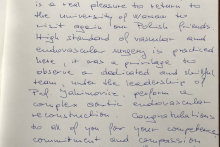 is a real pleasure to return to
the university of Warsaw to
visit again our Polish friends
High standard of vascular and
endovascular surgery is practiced
here, it was a privilege to
observe a dedicated and skilful
team, under the leadership of
Prof Jakimowicz, perform a
complex aortic endovascular
reconstruction Congratulations
to all of you for your competence
commitment and compassion